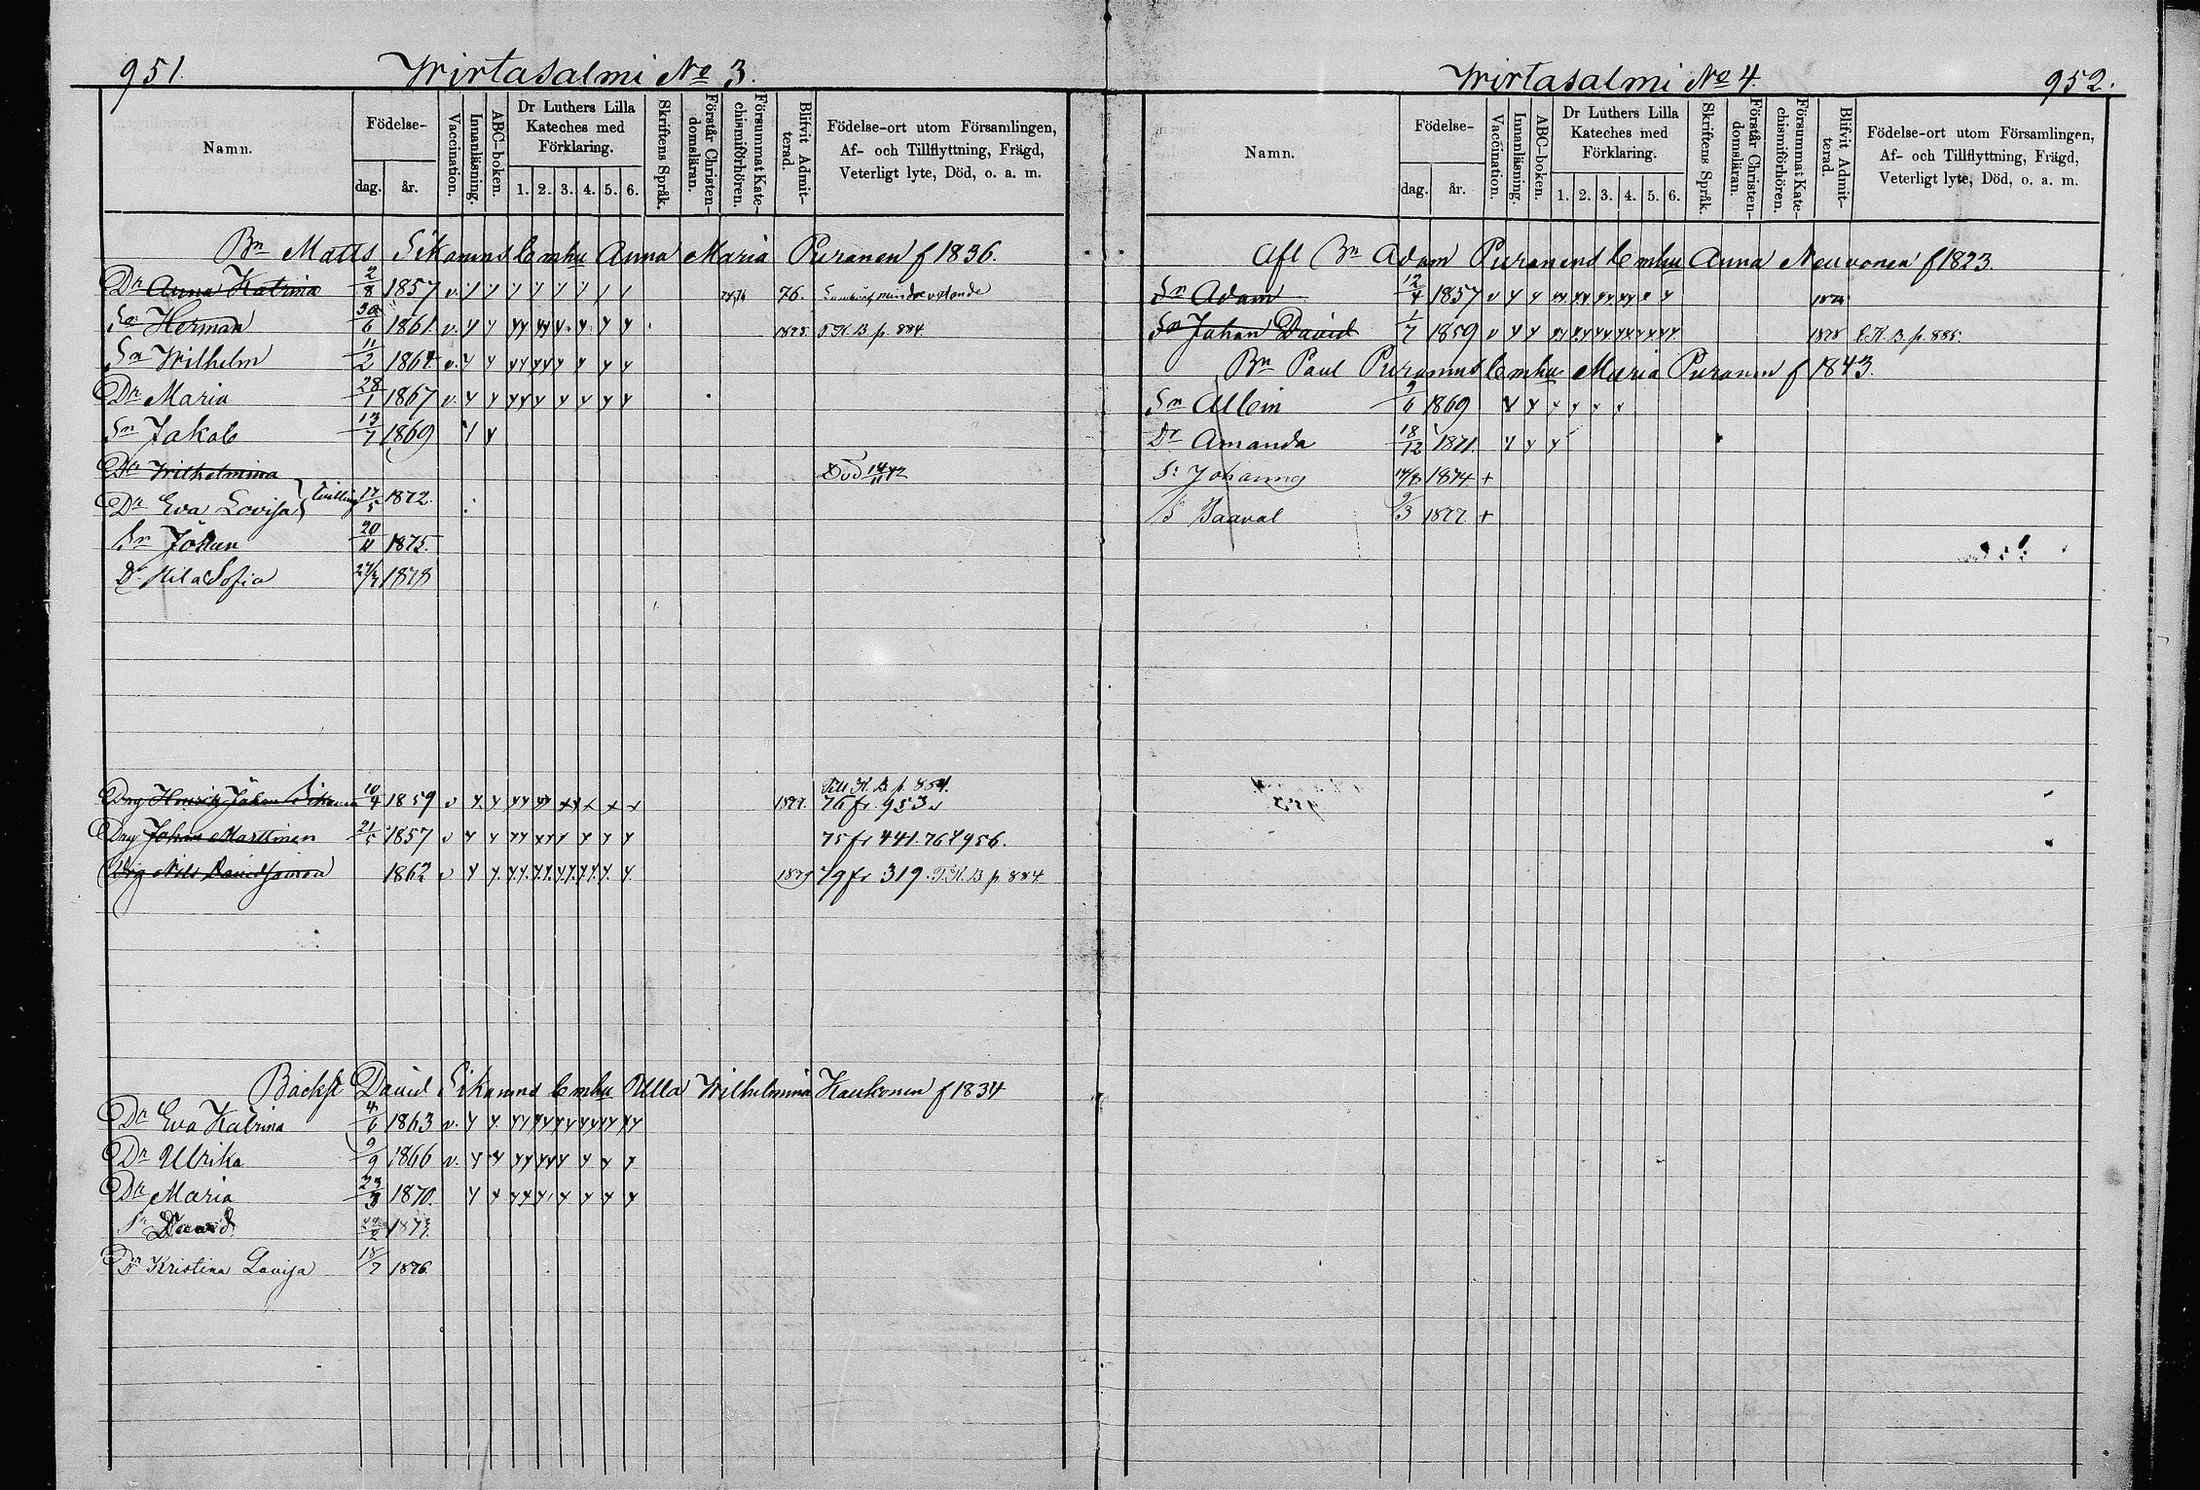 951. Wirtasalmi No 3.
Namn. Födelse- dag. år. Vaccination. Innanläsning. ABC-boken. Dr Luthers Lilla Kateches med Förklaring. 1. 2. 3. 4. 5. 6. Skriftens Språk. Förstår Christendomsläran. Försummat Katechismiförhören. Blifvit Admitterad. Födelse-ort utom Församlingen, Af- och Tillflyttning, Frägd, Veterligt lyte, Död, o. a. m.
Bn Matts Sikanens Emhu Anna Maria Puranen f 1836.
Dr Anna Katrina 2/8 1857 v. 76.
Sn Herman 30/6 1861 v. 1878. T. K. B p. 884
Sn Wilhelm 11/2 1864 v.
Dr Maria 28/1 1867 v.
Sn Jakob 13/7 1869
Dr Wilhelmina Död 14/11 72
Dr Eva Lovisa Tvilling 17/5 1872.
Sn Johan 20/11 1875.
Dr Hilda Sofia 1878
Till K. B p. 854.
Drg Henrik Johan Sikanen 10/4 1859 v 1877. 76 fr. 953
Drg Johan Marttinen 21/5 1857 v 75 fr 441. 76 t 956.
Drg Nils Davidsainen 1862 v 1879 79 fr 319. T. K. B p 884
Backst David Sikanens Emhu Ulla Wilhelmina Haukonen f 1834
Dr Eva Katrina 4/6 1863 v.
Dr Ulrika 9/9 1866 v.
Dr Maria 23/3 1870.
Sn David 1873.
Dr Kristina Lovisa 18/7 1876.
Wirtasalmi No 4. 952.
Namn. Födelse- dag. år. Vaccination. Innanläsning. ABC-boken. Dr Luthers Lilla Kateches med Förklaring. 1. 2. 3. 4. 5. 6. Skriftens Språk. Förstår Christendomsläran. Försummat Katechismiförhören. Blifvit Admitterad. Födelse-ort utom Församlingen, Af- och Tillflyttning, Frägd, Veterligt lyte, Död, o. a. m.
Afl Bn Adam Puranens Emhu Anna Neuvonen f 1823.
Sn Adam 12/4 1857 v
Sn Johan David 1/7 1859 v 1878 T. K. B. p. 885.
Bn Paul Puranens Emhu Maria Puranen f 1843.
Sn Albin 9/6 1869
Dr Amanda 18/12 1871.
S. Johannes 14/8 1874 +
S Paaval 9/3 1877 +